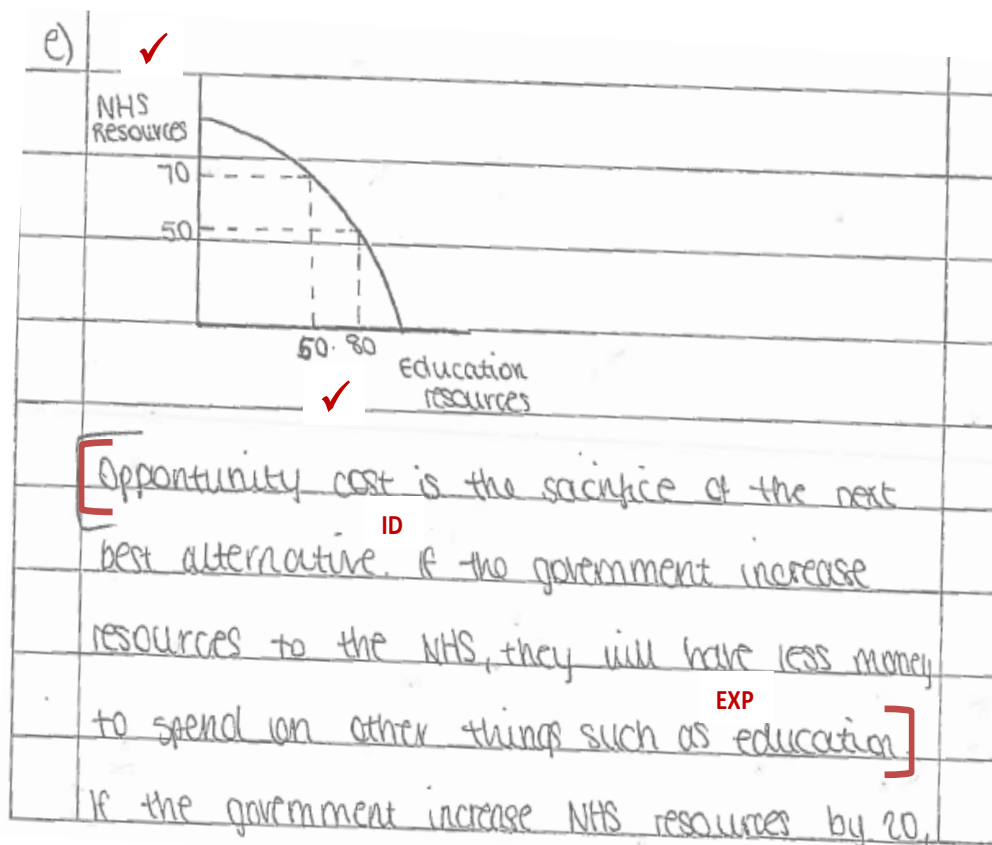 e)
NHS
Resources
70
50
50. 80
Education
resources
Oppontunity cost is the sacrifice of the next
ID
best alternative. If the government increase
resources to the NHS, they will have less money
EXP
to spend on other things such as education.
If the government increase NHS resources by 20,